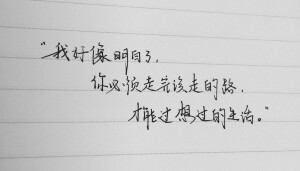 “我好像明白了，
你必须走完该走的路，
才能过想过的生活。”